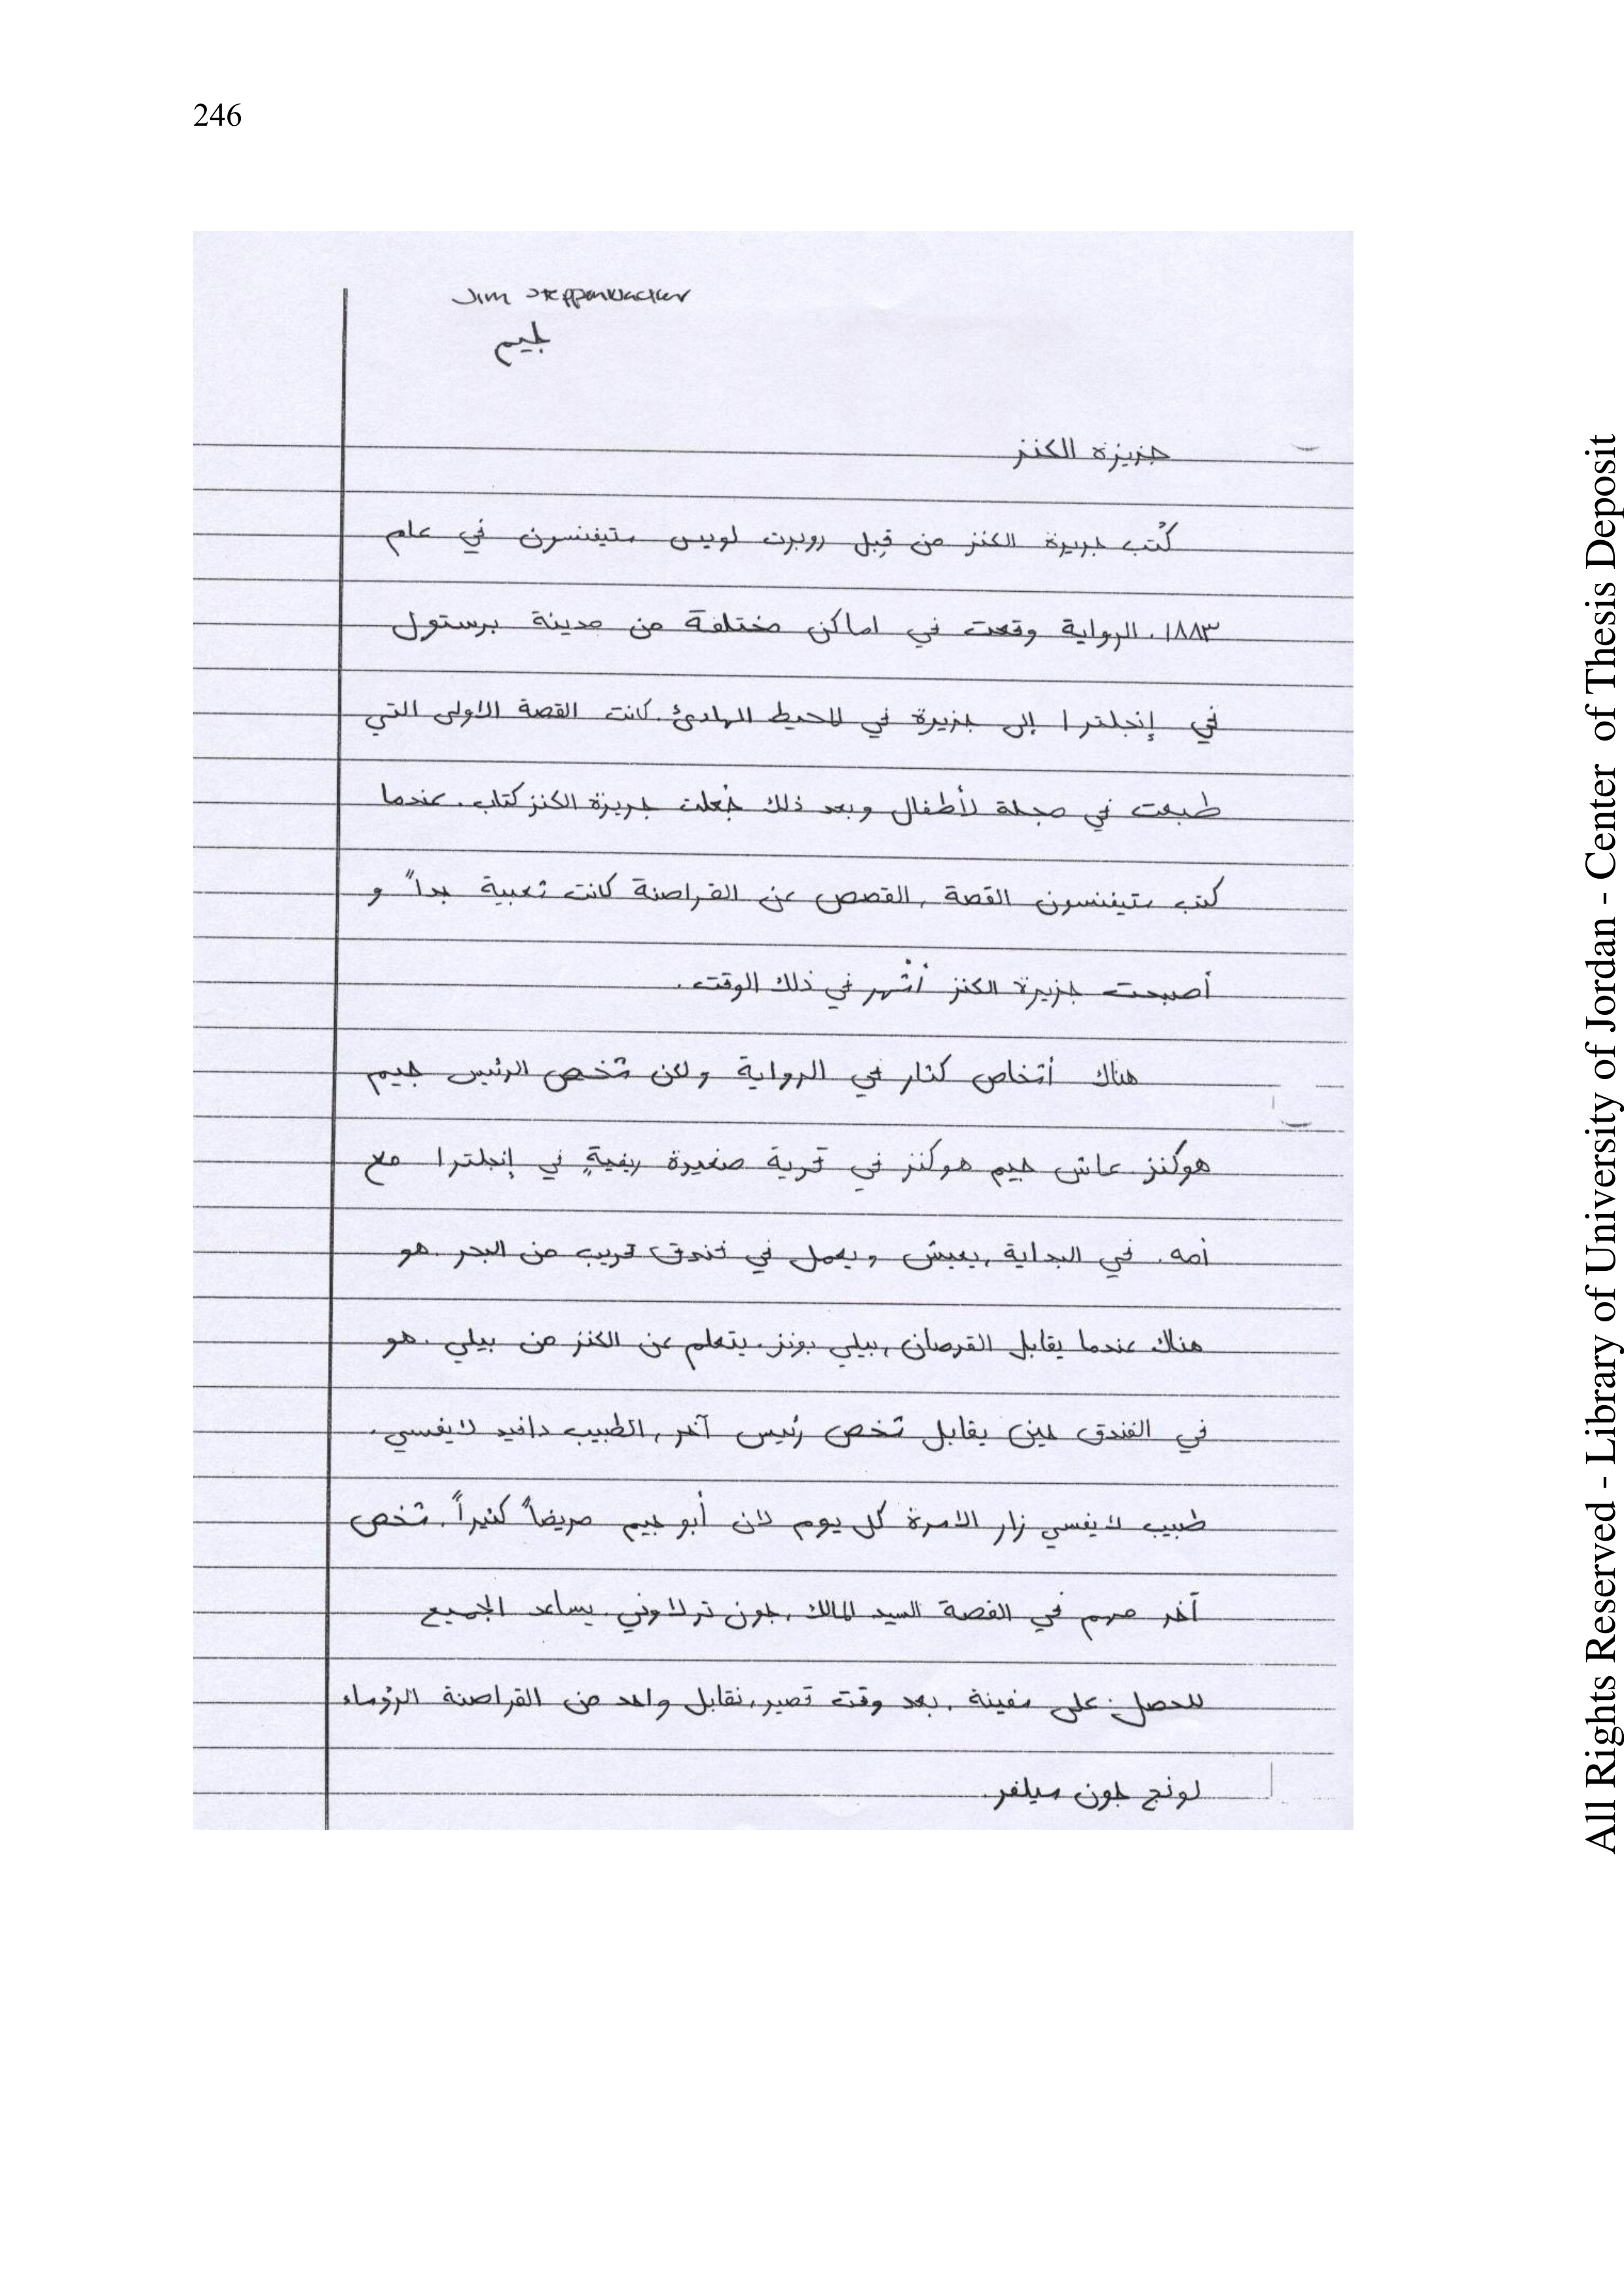 246
Jim Steppenwacker
جيم
جزيزة الكنز
كُتب جزيرة الكنز من قِبل روبرت لويس ستيفنسون في عام
١٨٨٣. الرواية وقعت في اماكن مختلفة من مدينة برستول
في إنجلترا إلى جزيرة في المحيط الهادئ. كانت القصة الاولى التي
طبعت في مجلة لأطفال وبعد ذلك جُعلت جريزة الكنز كتاب. عندما
كتب ستيفنسون القصة, القصص عن القراصنة كانت شعبية جداً و
أصبحت جزيرة الكنز أشهر في ذلك الوقت.
هناك أشخاص كثار في الرواية ولكن شخص الرئيس جيم
هوكنز. عاش جيم هوكنز في قرية صغيرة ريفيةٍ في إنجلترا مع
أمه. في البداية, يعيش ويعمل في فندق قريب من البحر. هو
هناك عندما يقابل القرصان, بيلي بونز. يتعلم عن الكنز من بيلي. هو
في الفندق حين يقابل شخص رئيس آخر, الطبيب دافيد لايفسي.
طبيب لايفسي زار الاسرة كل يوم لان أبو جيم مريضاً كثيراً. شخص
آخر مهم في القصة السيد المالك, جون ترلاوني. يساعد الجميع
للحصل على سفينة. بعد وقت قصير, نقابل واحد من القراصنة الرؤساء
لونج جون سيلفر.
All Rights Reserved - Library of University of Jordan - Center of Thesis Deposit